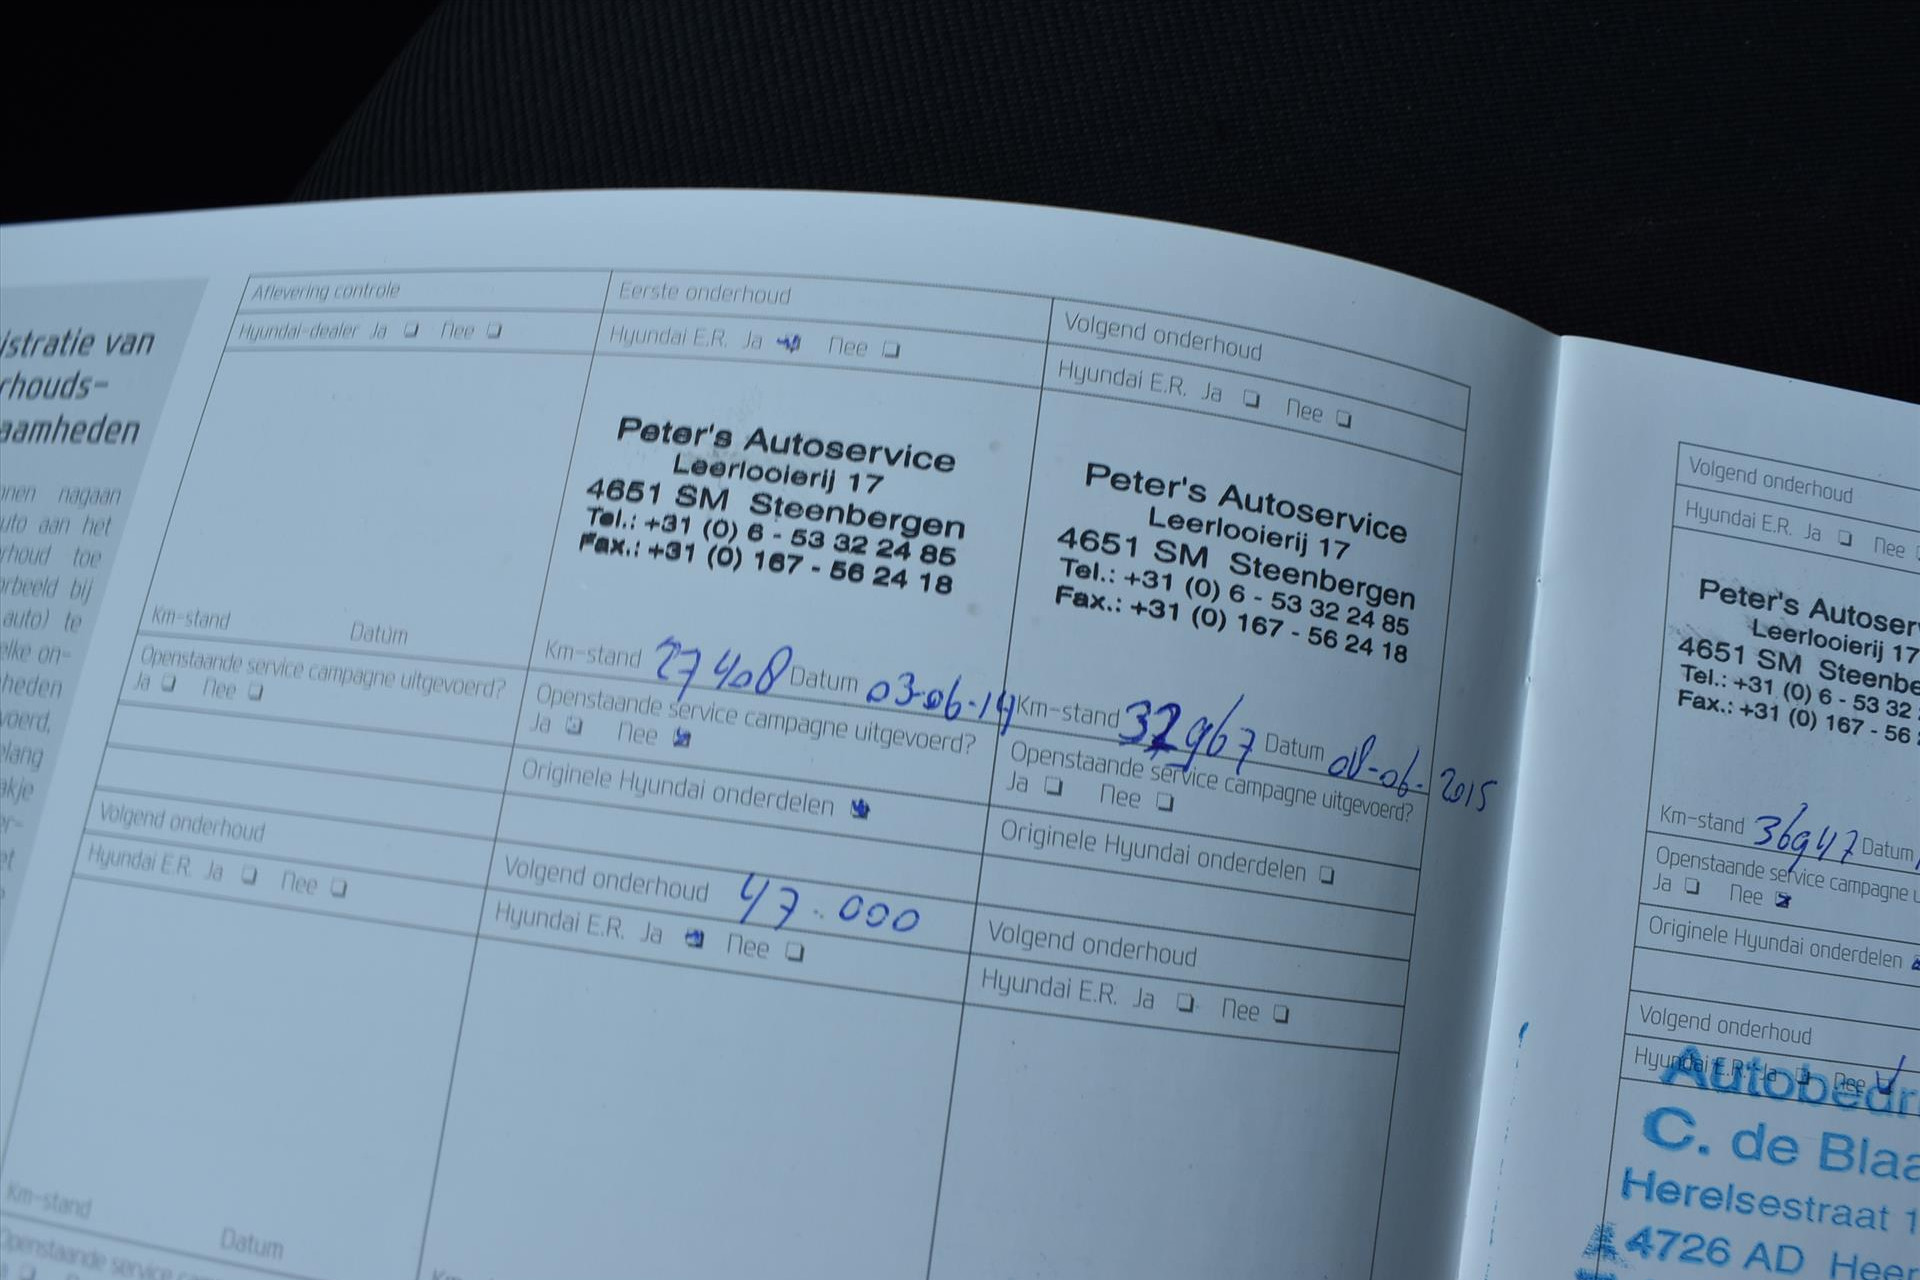 istratie van
rhouds-
aamheden
nnen nagaan
uto aan het
rhoud toe
orbeeld bij
auto) te
elke on-
heden
voerd,
elang
akje
er-
et
Aflevering controle
Hyundai-dealer Ja Nee
Km-stand Datum
Openstaande service campagne uitgevoerd?
Ja Nee
Volgend onderhoud
Hyundai E.R. Ja Nee
Km-stand
Datum
Openstaande service campag
Eerste onderhoud
Hyundai E.R. Ja Nee
Peter's Autoservice
Leerlooierij 17
4651 SM Steenbergen
Tel.: +31 (0) 6 - 53 32 24 85
Fax.: +31 (0) 167 - 56 24 18
Km-stand 27408 Datum 03-06-14
Openstaande service campagne uitgevoerd?
Ja Nee
Originele Hyundai onderdelen
Volgend onderhoud 47.000
Hyundai E.R. Ja Nee
Volgend onderhoud
Hyundai E.R. Ja Nee
Peter's Autoservice
Leerlooierij 17
4651 SM Steenbergen
Tel.: +31 (0) 6 - 53 32 24 85
Fax.: +31 (0) 167 - 56 24 18
Km-stand 32967 Datum 08-06-2015
Openstaande service campagne uitgevoerd?
Ja Nee
Originele Hyundai onderdelen
Volgend onderhoud
Hyundai E.R. Ja Nee
Volgend onderhoud
Hyundai E.R. Ja Nee
Peter's Autoser
Leerlooierij 17
4651 SM Steenbe
Tel.: +31 (0) 6 - 53 32
Fax.: +31 (0) 167 - 56
Km-stand 36947 Datum
Openstaande service campagne u
Ja Nee
Originele Hyundai onderdelen
Volgend onderhoud
Hyundai E.R. Ja Nee
Autobedri
C. de Blaa
Herelsestraat 1
4726 AD Heer